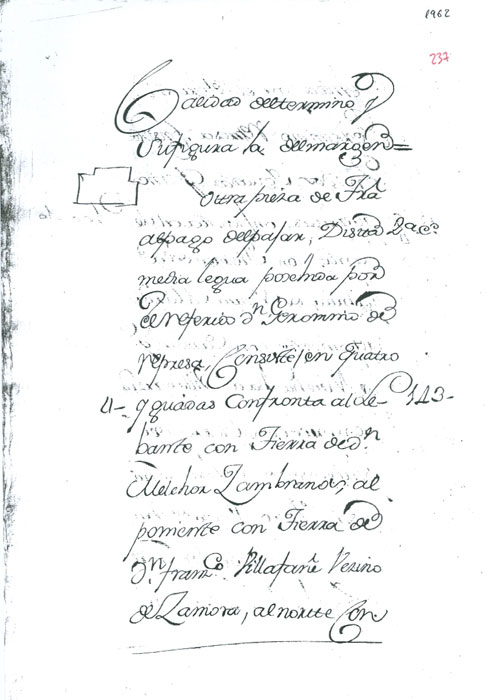 1962
237
Calidad del termino, y
su figura la del margen =
Otra pieza de Trã
al pago del pasar, Dista Vª cª
media legua poseida por
el referido Dn Geronimo de
represa, Consiste en quatro
4- yguadas Confronta al le- 143-
bante con Tierra de dn
Melchor Zambranos, al
poniente con Tierra de
Dn. franco Villafañe Vezino
de Zamora, al norte Con